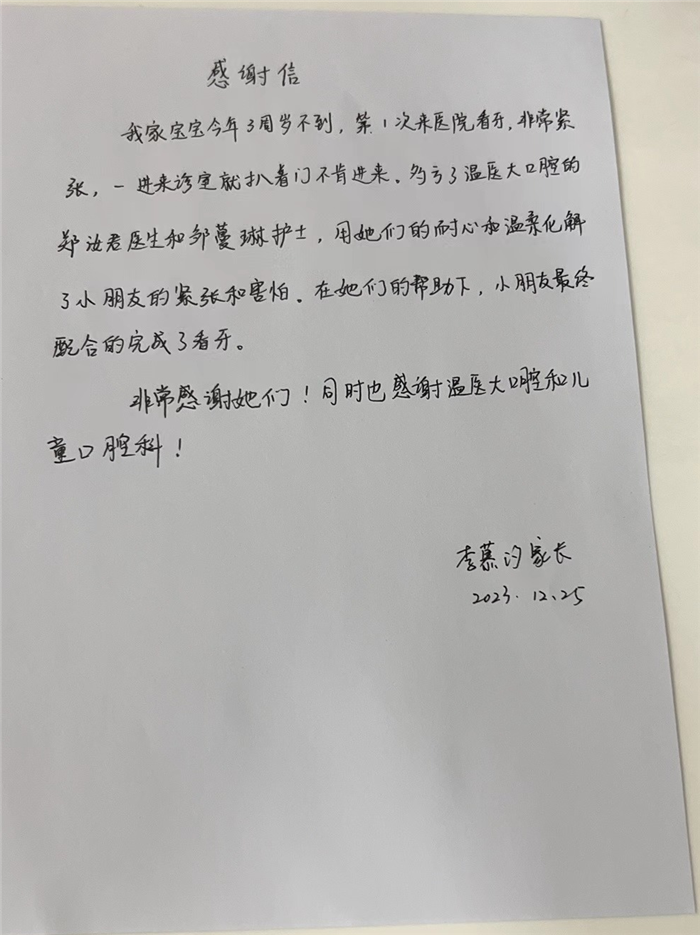 感谢信
我家宝宝今年3周岁不到，第1次来医院看牙，非常紧
张，一进来诊室就扒着门不肯进来。多亏了温医大口腔的
郑汝君医生和邹蔓琳护士，用她们的耐心和温柔化解
了小朋友的紧张和害怕。在她们的帮助下，小朋友最终
配合的完成了看牙。
非常感谢她们！同时也感谢温医大口腔和儿
童口腔科！
李慕汐家长
2023.12.25